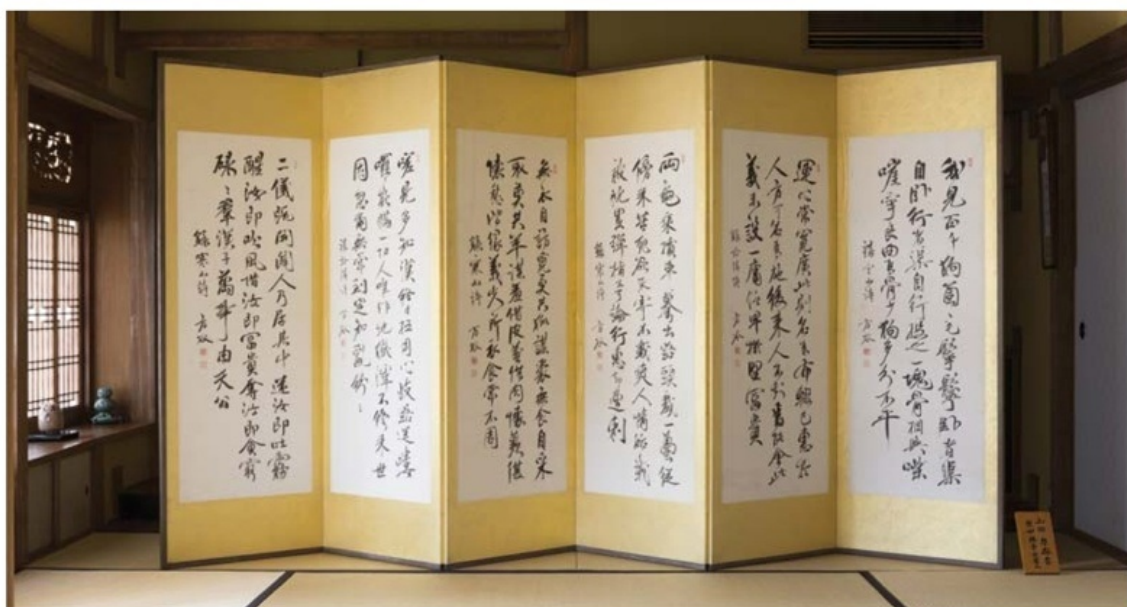 我見百十狗箇〻毛鬇鬡卧者渠
自卧行者渠自行投之一塊骨相與喍
啀爭良由為骨少狗多分不平
錄寒山詩
運心常寬廣此則名為布輟己惠於
人方可名為施後來人不知焉能會此
義未設一庸僧早擬望富貴
錄拾得詩
兩龜乘犢車驀出路頭戲一蠱從
傍來苦死欲求寄不載爽人情始載
被沈累彈指不可論行恩卻遭刺
錄寒山詩
無衣自訪覓莫共狐謀裘無食自采
取莫共羊謀羞借皮兼借肉懷歎復
懷愁皆緣義失所衣食常不周
錄寒山詩
嗟見多知漢終日枉用心岐路逞嘍
囉欺謾一切人唯作地獄滓不修來世
因忽爾無常到定知亂紛〻
錄拾得詩
二儀既開闢人乃居其中迷汝即吐霧
醒汝即吹風惜汝即富貴奪汝即貧窮
碌〻群漢子萬事由天公
錄寒山詩